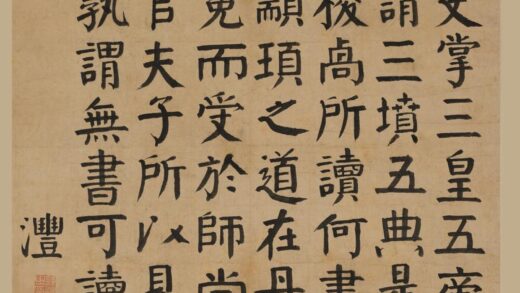 掌三皇五帝
謂三墳五典是
稷卨所讀何書
顓頊之道在丹
冕而受於師尚
夫子所以見
孰謂無書可讀
灃